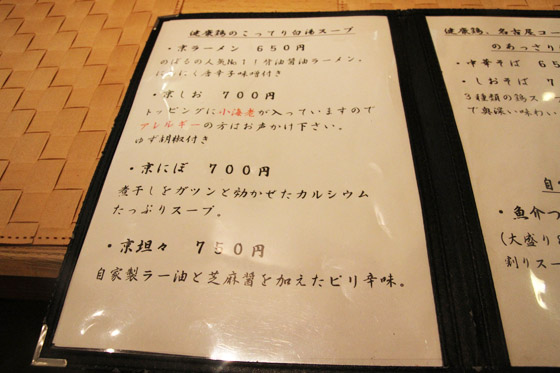 健康鶏のこってり白湯スープ
・京ラーメン 650円
のぼるの人気物!!背油醤油ラーメン。
にんにく唐辛子味噌付き
・京しお 700円
トッピングに小海老が入っていますので
アレルギーの方はお声かけ下さい。
ゆず胡椒付き
・京にぼ 700円
煮干しをガツンと効かせたカルシウム
たっぷりスープ。
・京坦々 750円
自家製ラー油と芝麻醤を加えたピリ辛味。
健康鶏、名古屋コー
のあっさり
・中華そば 6
・しおそば 7
3種類の鶏スー
で奥深い味わい
自
・魚介つ
(大盛り
割りスー